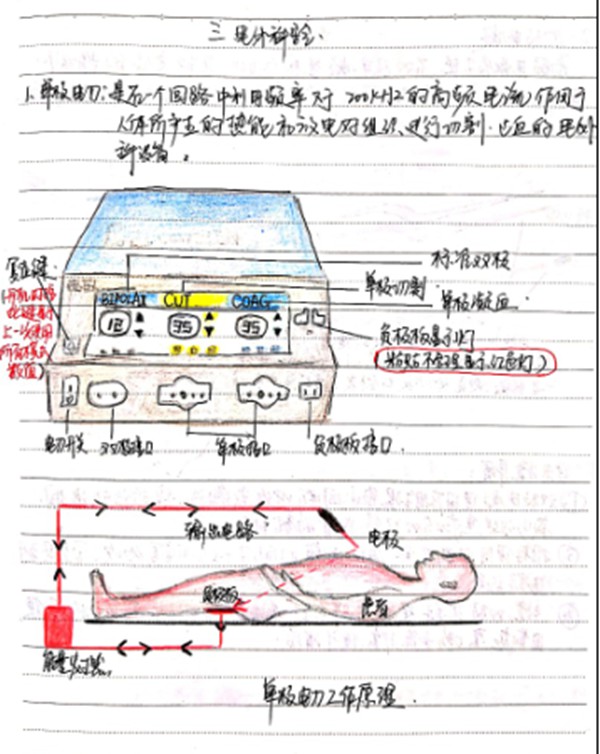 三 电外科安全.
1. 单极电刀:是在一个回路中利用频率大于200KHZ的高频电流作用于
人体所产生的热能和放电对组织进行切割.止血的电外
科设备。
标准双极
复位键
单极切割
单极凝血
(开机时按
此键显示
上一次使用
所有模式
数值)
BIPOLAR CUT COAG
12 35 35
负极板显示灯
(粘贴不合理显示红色灯)
电刀开关 双极接口 单极接口 负极板接口.
输出电路 电极
负极板 患者
能量发射器.
单极电刀工作原理.